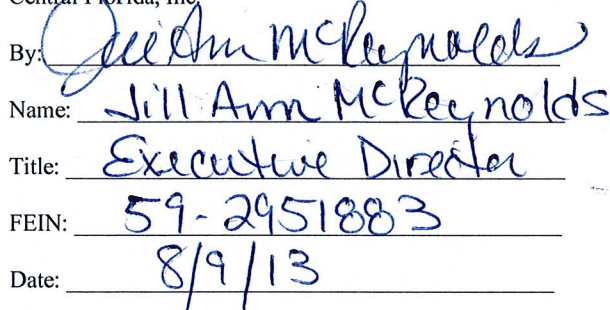 Central Florida, Inc.
By: Jill Ann McReynolds
Name: Jill Ann McReynolds
Title: Executive Director
FEIN: 59-2951883
Date: 8/9/13